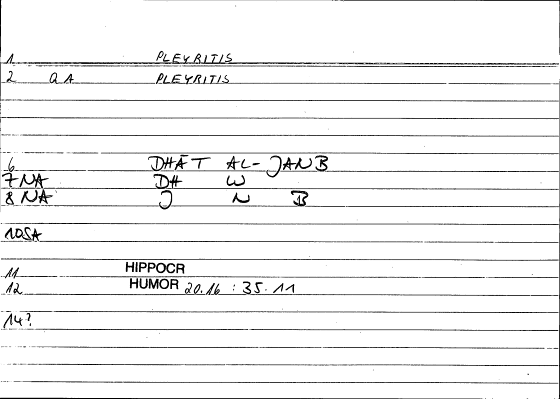 1 PLEYRITIS
2 aA PLEYRITIS
6 DHĀT AL-JANB
7 NA DH W
8 NA J N B
10SA
11 HIPPOCR
12 HUMOR 20.16 : 35.11
14?